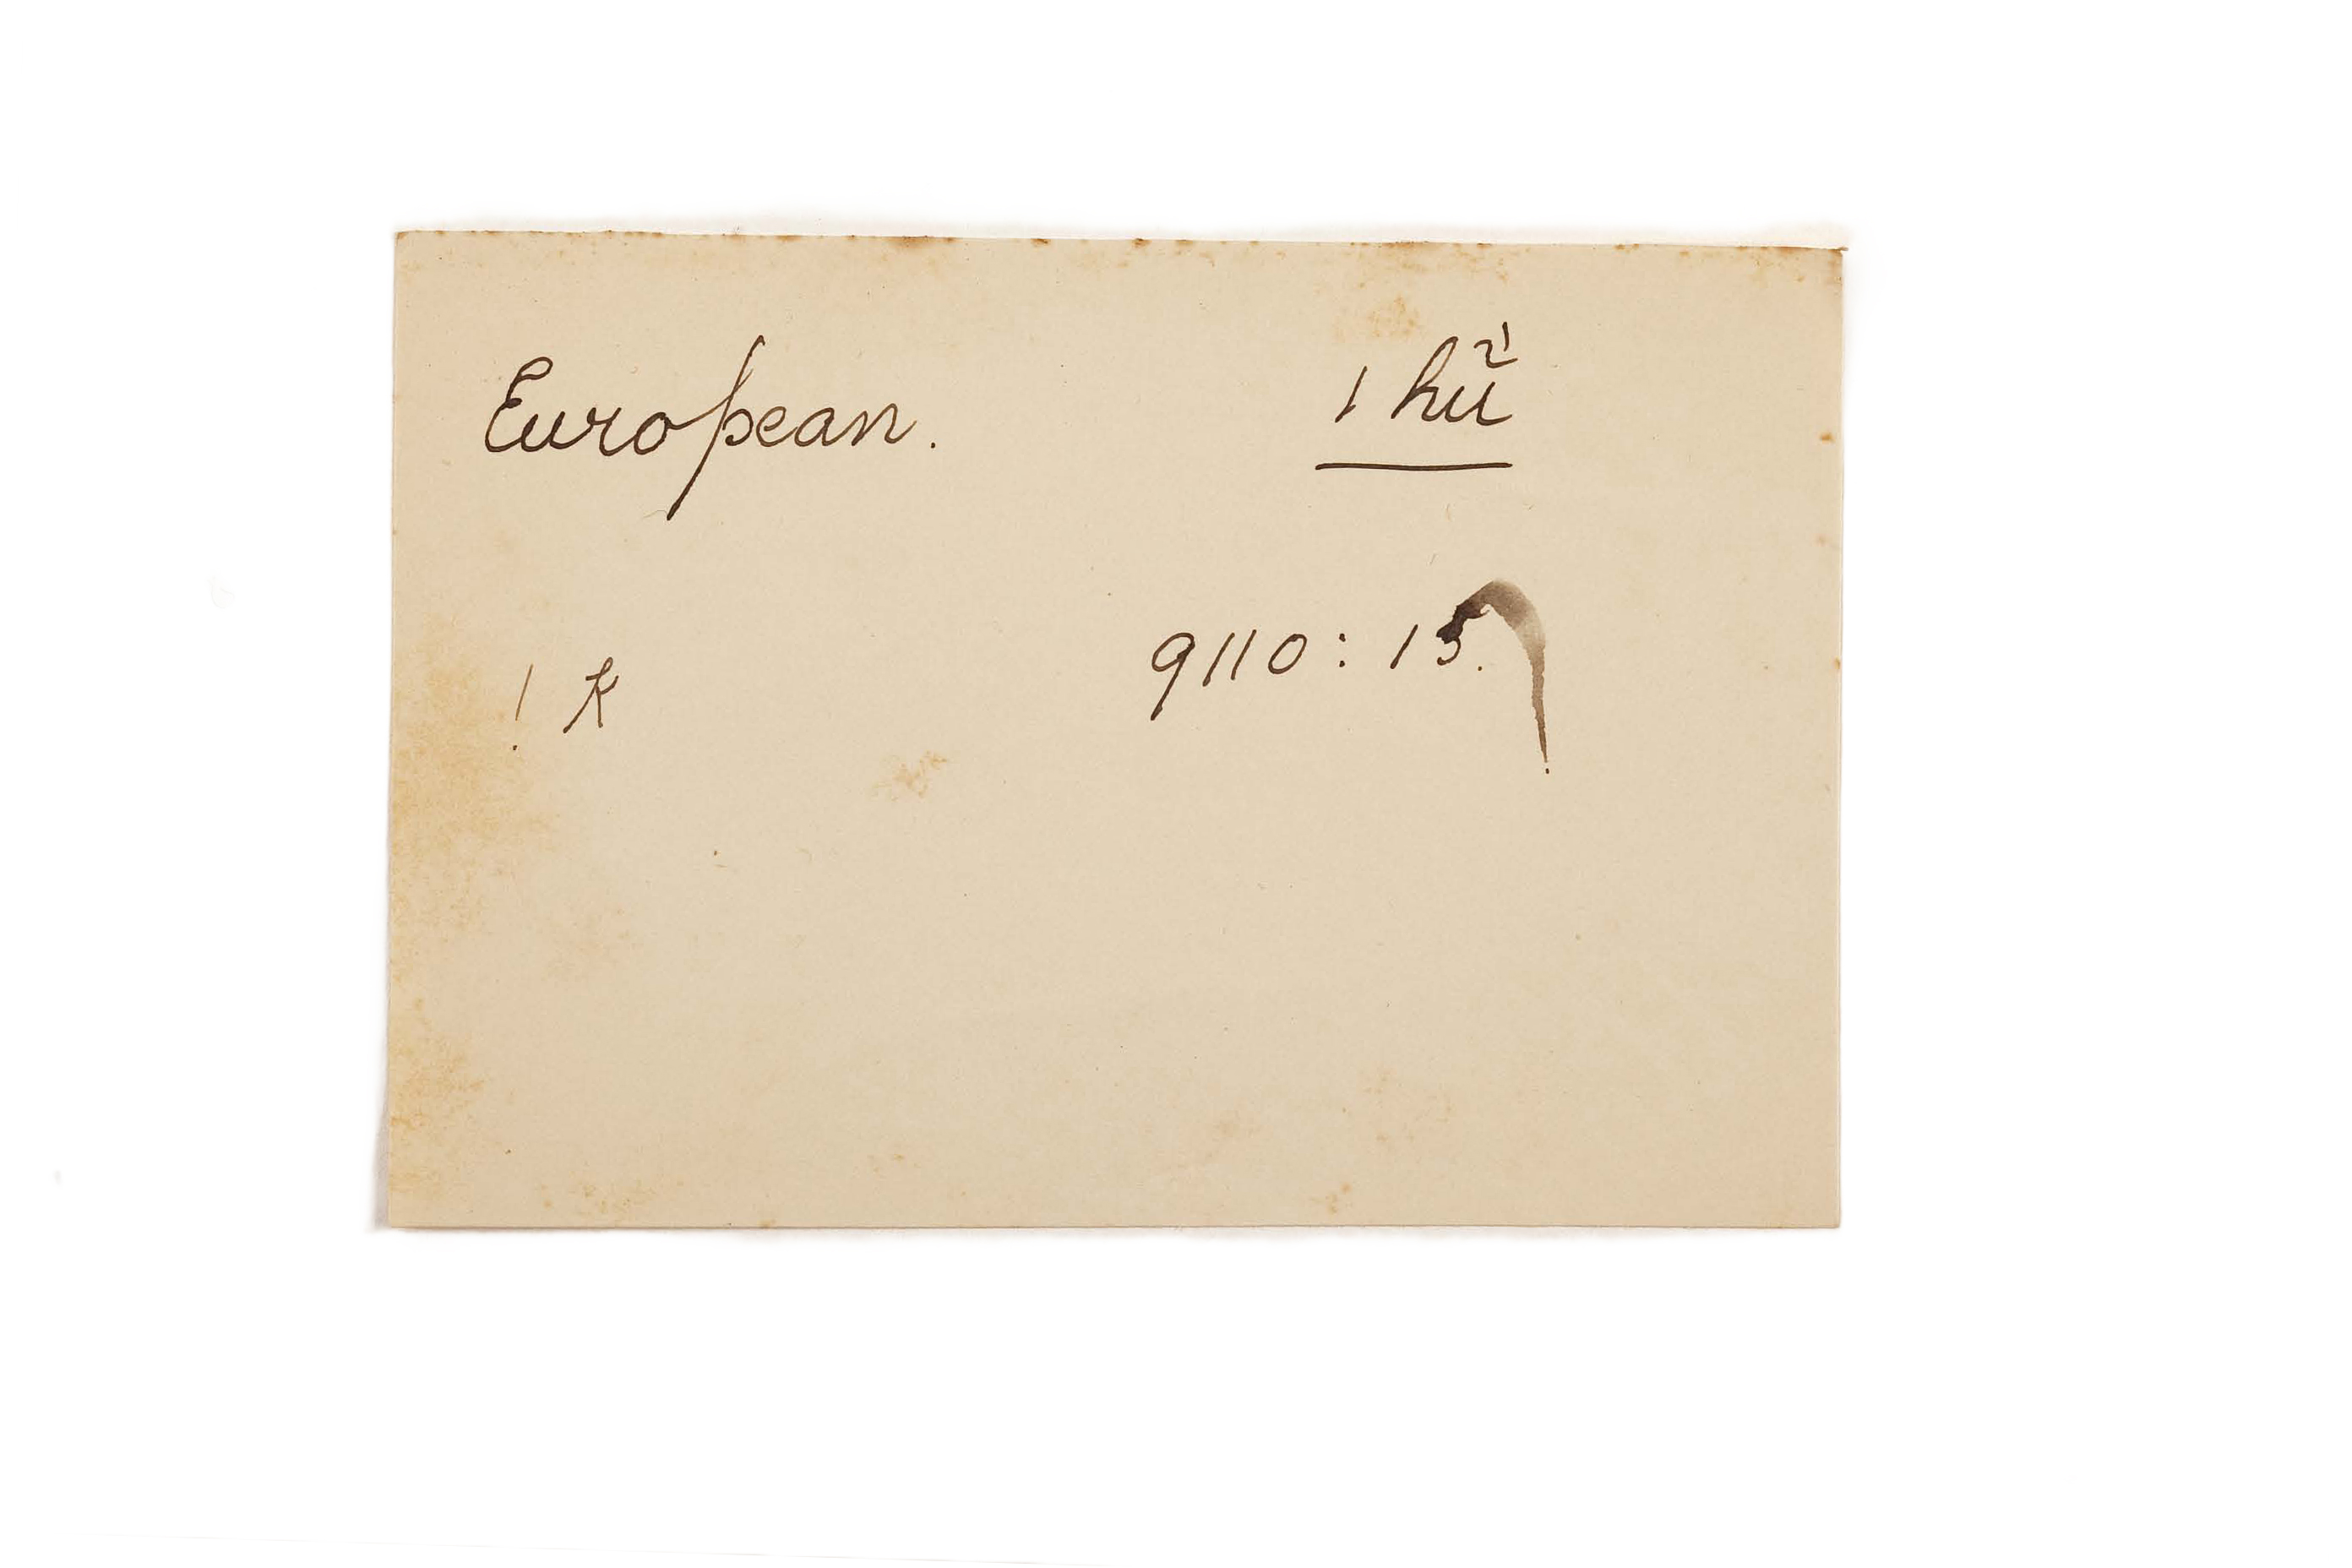 European. 1 hũ
! k 9110 : 15.